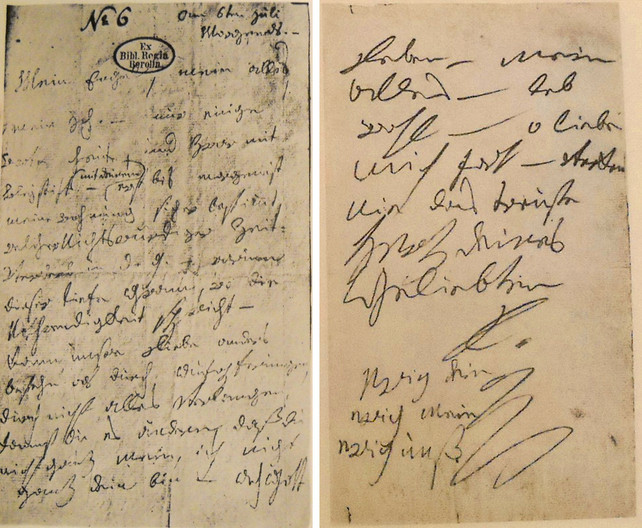 № 6
am 6ten Juli
Morgends. —
Ex
Bibl. Regia
Berolin.
Mein Engel, mein alles
mein Ich. — nur einige
Worte heute, und zwar mit
Bleystift — (mit deinem) erst bis morgen ist
meine Wohnung sicher bestimmt,
welcher Nichtswürdiger Zeit-
verderb in d. g. — warum
dieser tiefe Gram, wo die
Nothwendigkeit spricht —
Kann unsre Liebe anders
bestehn als durch Aufopferungen,
durch nicht alles verlangen,
kannst du es ändern, daß du
nicht ganz mein, ich nicht
ganz dein bin — Ach Gott
Leben — mein
alles — leb
wohl — o liebe
mich fort — verken
nie das treuste
Herz deines
Geliebten
L.
ewig dein
ewig mein
ewig unß